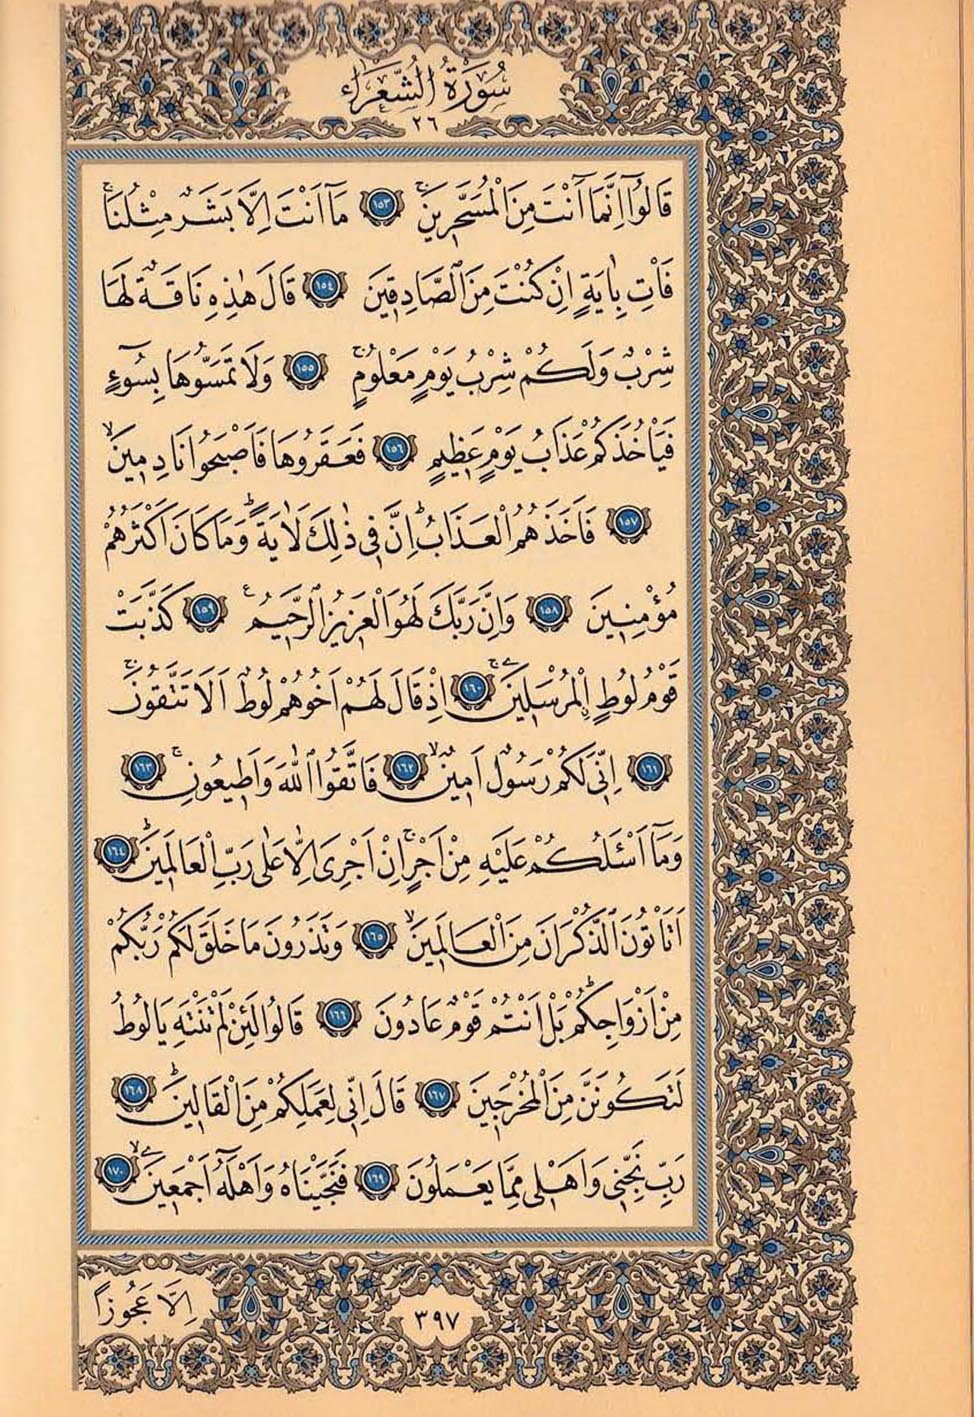 سُورَةُ الشُّعَرَاءِ
٢٦
قَالُوٓا اِنَّمَآ اَنْتَ مِنَ الْمُسَحَّر۪ينَۚ ١٥٣ مَآ اَنْتَ اِلَّا بَشَرٌ مِثْلُنَاۚ
فَأْتِ بِاٰيَةٍ اِنْ كُنْتَ مِنَ الصَّادِق۪ينَ ١٥٤ قَالَ هٰذِهِ نَاقَةٌ لَهَا
شِرْبٌ وَلَكُمْ شِرْبُ يَوْمٍ مَعْلُومٍۚ ١٥٥ وَلَا تَمَسُّوهَا بِسُٓوءٍ
فَيَأْخُذَكُمْ عَذَابُ يَوْمٍ عَظ۪يمٍ ١٥٦ فَعَقَرُوهَا فَاَصْبَحُوا نَادِم۪ينَۙ
١٥٧ فَاَخَذَهُمُ الْعَذَابُۜ اِنَّ ف۪ي ذٰلِكَ لَاٰيَةًۜ وَمَا كَانَ اَكْثَرُهُمْ
مُؤْمِن۪ينَ ١٥٨ وَاِنَّ رَبَّكَ لَهُوَ الْعَز۪يزُ الرَّح۪يمُ۟ ١٥٩ كَذَّبَتْ
قَوْمُ لُوطٍ اِلْمُرْسَل۪ينَۚ ١٦٠ اِذْ قَالَ لَهُمْ اَخُوهُمْ لُوطٌ اَلَا تَتَّقُونَۚ
١٦١ اِنّ۪ي لَكُمْ رَسُولٌ اَم۪ينٌۙ ١٦٢ فَاتَّقُوا اللّٰهَ وَاَط۪يعُونِۚ ١٦٣
وَمَآ اَسْـَٔلُكُمْ عَلَيْهِ مِنْ اَجْرٍۚ اِنْ اَجْرِيَ اِلَّا عَلٰى رَبِّ الْعَالَم۪ينَۜ ١٦٤
اَتَأْتُونَ الذُّكْرَانَ مِنَ الْعَالَم۪ينَۙ ١٦٥ وَتَذَرُونَ مَا خَلَقَ لَكُمْ رَبُّكُمْ
مِنْ اَزْوَاجِكُمْۜ بَلْ اَنْتُمْ قَوْمٌ عَادُونَ ١٦٦ قَالُوا لَئِنْ لَمْ تَنْتَهِ يَا لُوطُ
لَتَكُونَنَّ مِنَ الْمُخْرَج۪ينَ ١٦٧ قَالَ اِنّ۪ي لِعَمَلِكُمْ مِنَ الْقَال۪ينَۜ ١٦٨
رَبِّ نَجِّن۪ي وَاَهْل۪ي مِمَّا يَعْمَلُونَ ١٦٩ فَنَجَّيْنَاهُ وَاَهْلَهُٓ اَجْمَع۪ينَۙ ١٧٠
اِلَّا عَجُوزاً
٣٩٧